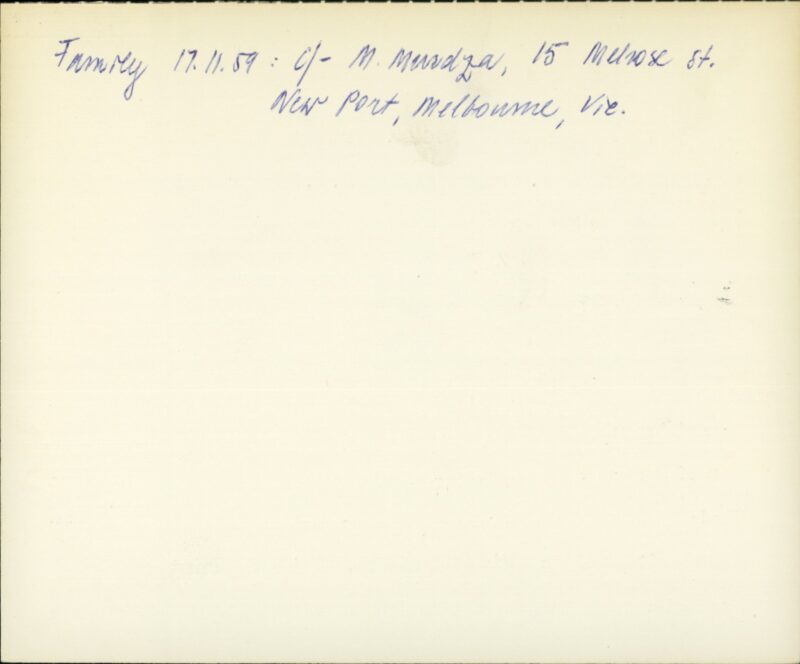 Family 17.11.59 : C/- M. Murdza, 15 Melrose St.
New Port, Melbourne, Vic.